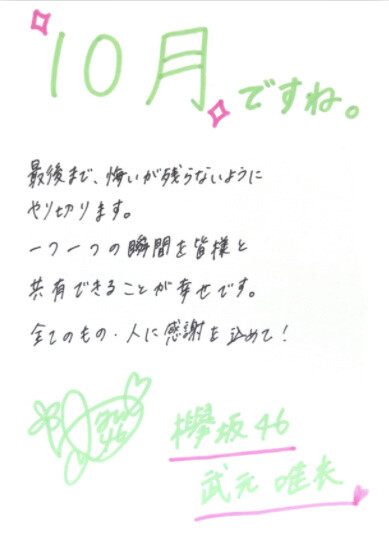 10月ですね。
最後まで、悔いが残らないように
やり切ります。
一つ一つの瞬間を皆様と
共有できることが幸せです。
全てのもの・人に感謝を込めて!
欅坂46
武元 唯衣